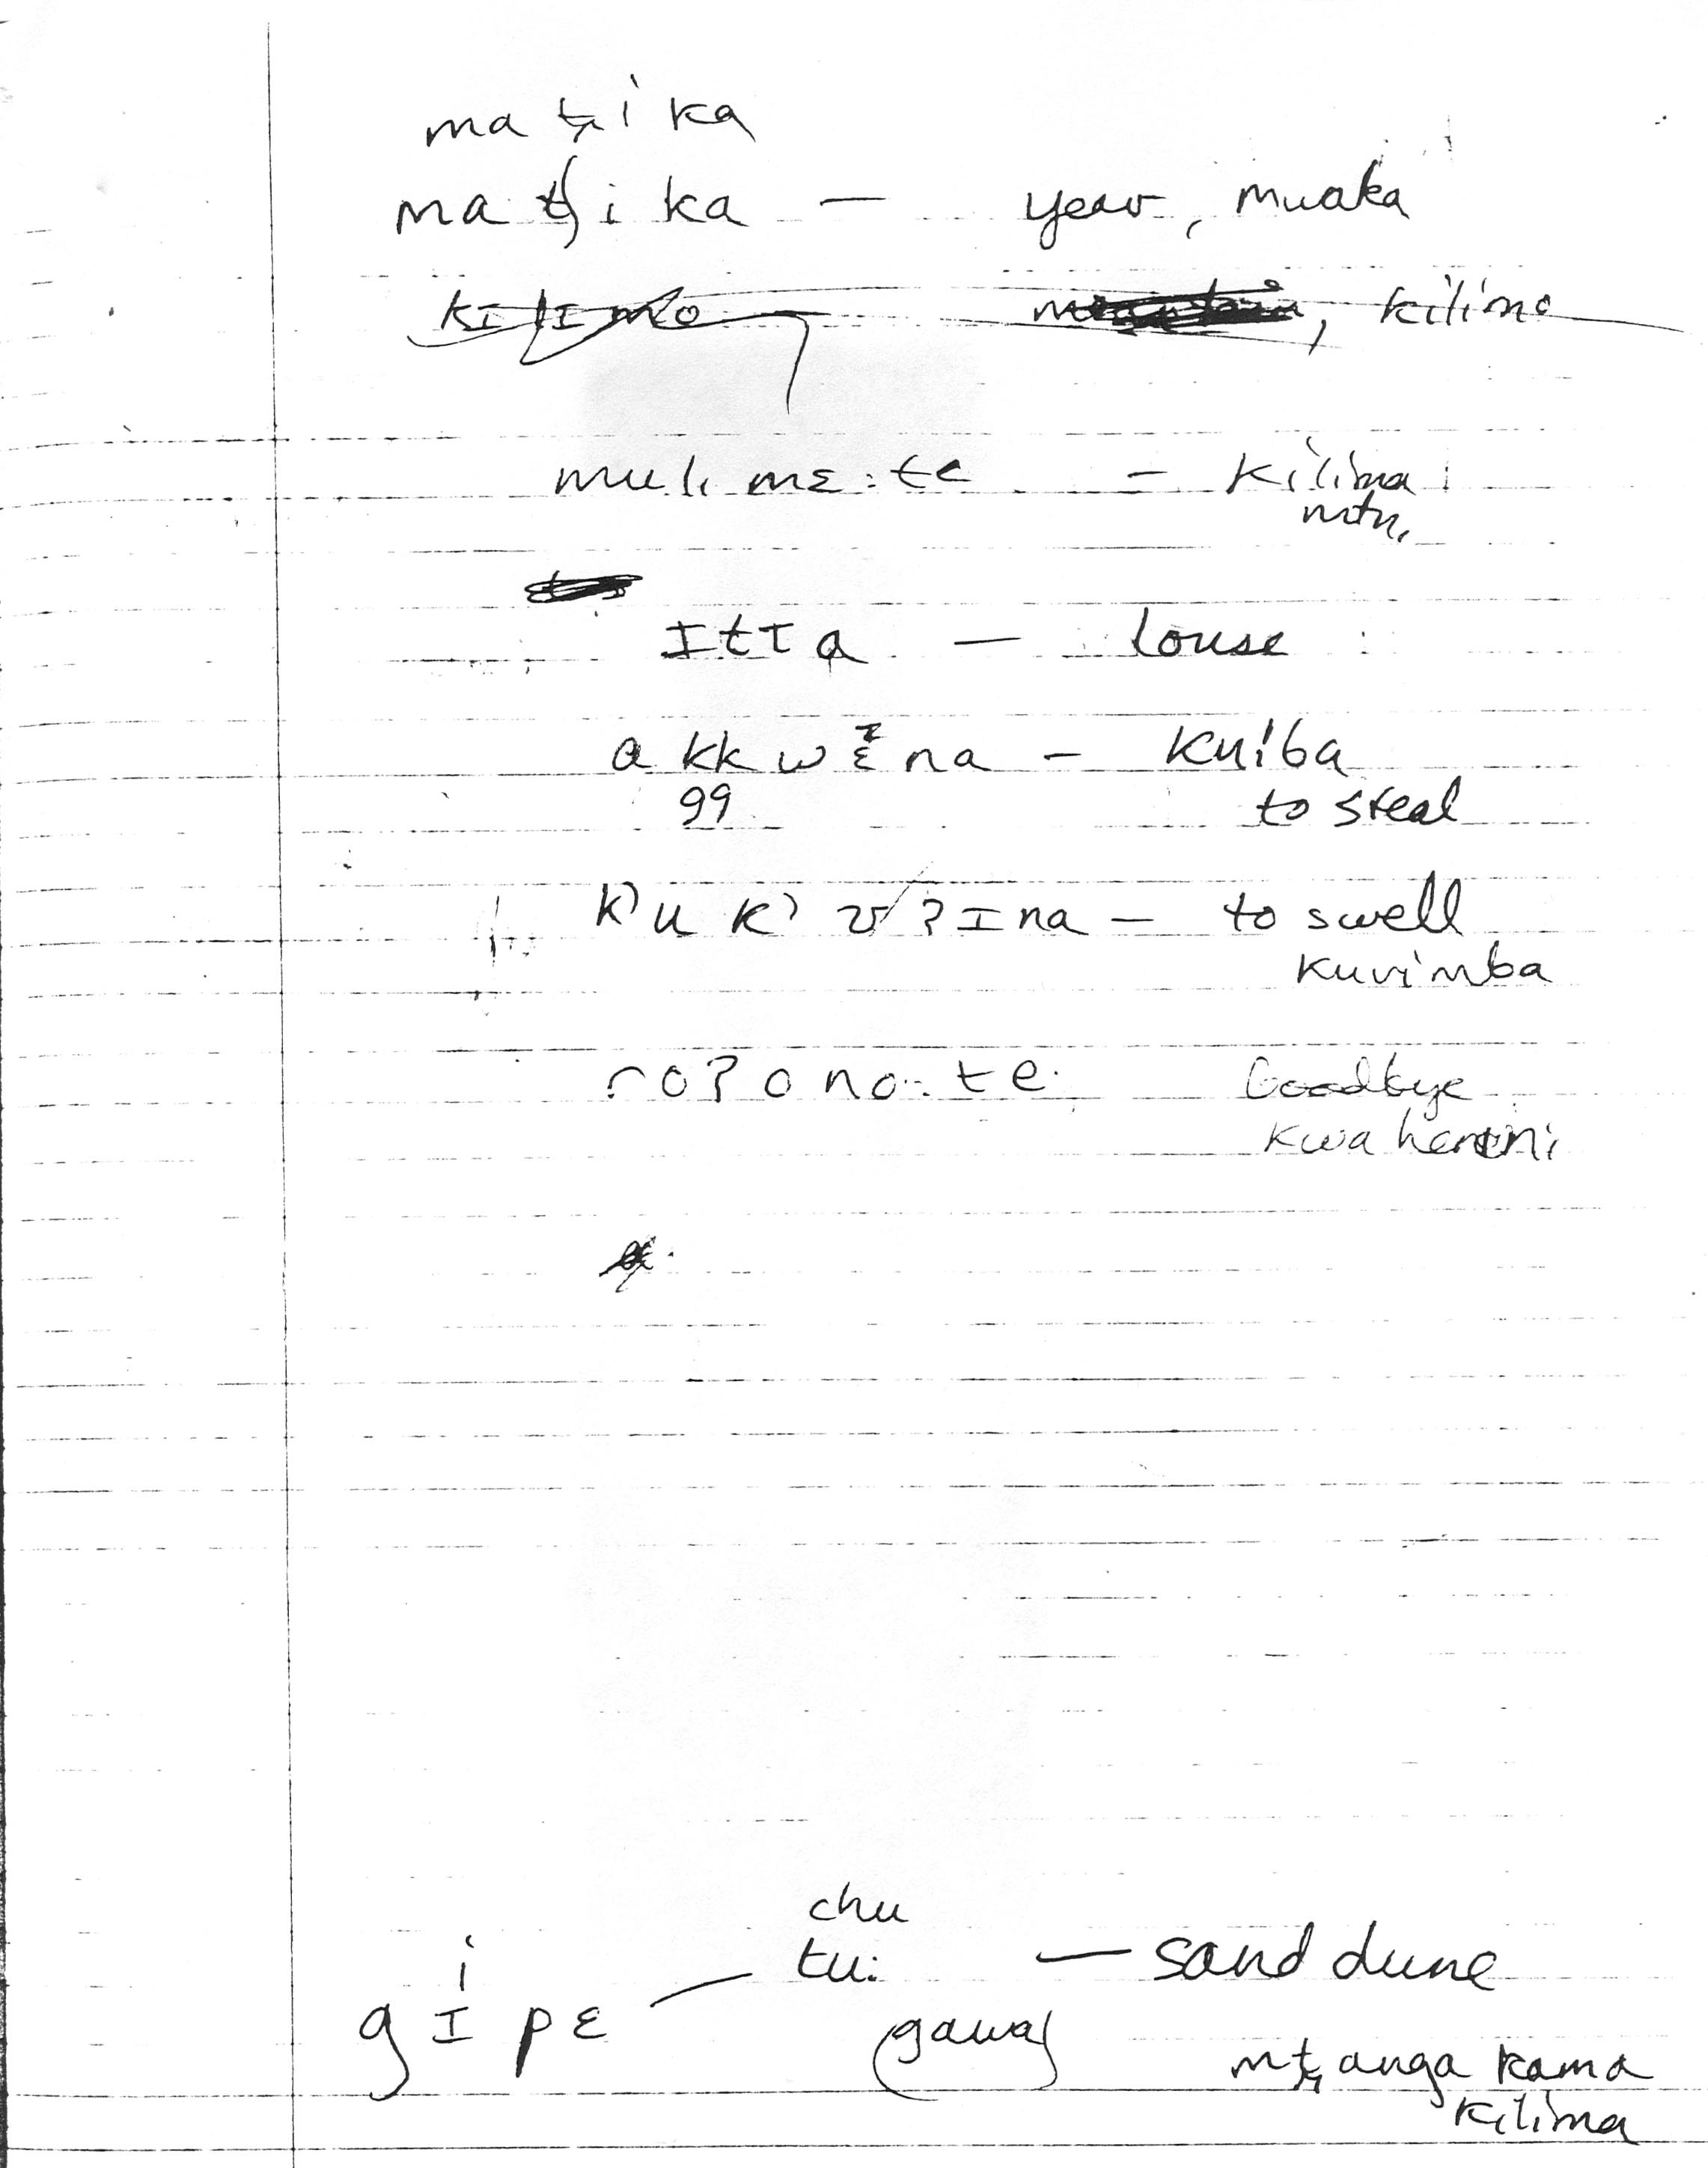 maʈi ka
maʈʃi ka — year, mwaka
kilimo , kilimo
muli mɛ:te – kilima
mtn.
ɪtɪa — louse
akkwɛna – kuiba
gg to steal
k'uk'ʊʔɪna – to swell
kuvimba
roʔono:te Goodbye
kwa herini
chu
i tu: — sand dune
gɪpɛ — (gawa)
mtanga kama
kilima